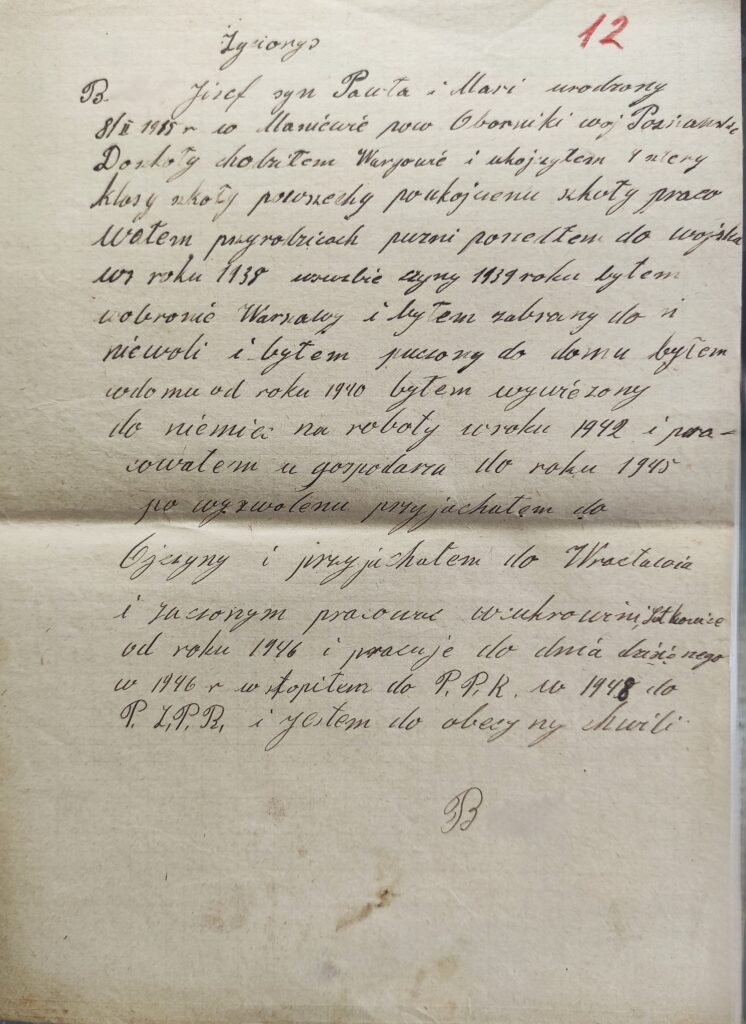 Zyciorys
12
B. Józef syn Pawła i Mari urodzony
8/II 1915 r w Maniewie pow Oborniki woj Poznańskie
Doskoły chodziłem Wargowie i ukojzyłem 4 stery
klasy szkoły powszechy poukojcienu szkoły praco
wałem przyrodzicach puzni poszedłem do wojska
w roku 1938 czyny 1939 roku byłem
wobronie Warszawy i byłem zabrany do n
niewoli i byłem puczony do domu byłem
wdomu od roku 1940 byłem wywiezony
do niemiec na roboty wroku 1942 i pra-
cowałem u gospodarza do roku 1945
po wyzwolenu przyjachałem do
Ojczyny i przyjachałem do Wrocławia
i zaczonym pracować wcukrowini
od roku 1946 i pracuje do dnia dzisienego
w 1946 r wstopiłem do P.P.R. w 1948 do
P.Z.P.R. i jestem do obecyny chwili
B